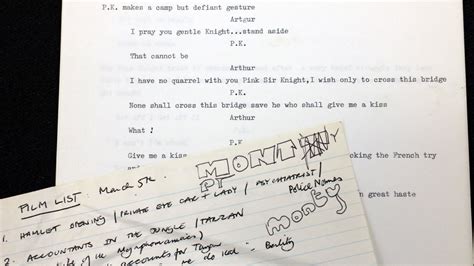 P.K. makes a camp but defiant gesture
Artgur
I pray you gentle Knight...stand aside
P.K.
That cannot be
Arthur
I have no quarrel with you Pink Sir Knight,I wish only to cross this bridge
P.K.
None shall cross this bridge save he who shall give me a kiss
Arthur
What !
P.K.
Give me a kiss
oking the French try
and
n great haste
FILM LIST: March 5th
MONTY
PY
money
1. HAMLET OPENING / PRIVATE EYE CAR + LADY / PSYCHIATRIST / Police Names
2. ACCOUNTANTS IN THE JUNGLE / TARZAN
accounts for Tarzan